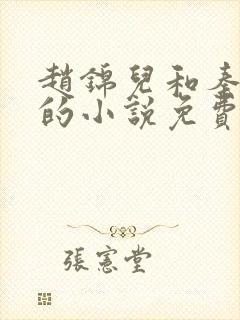 趙錦兒和秦
的小說免費
張憲堂